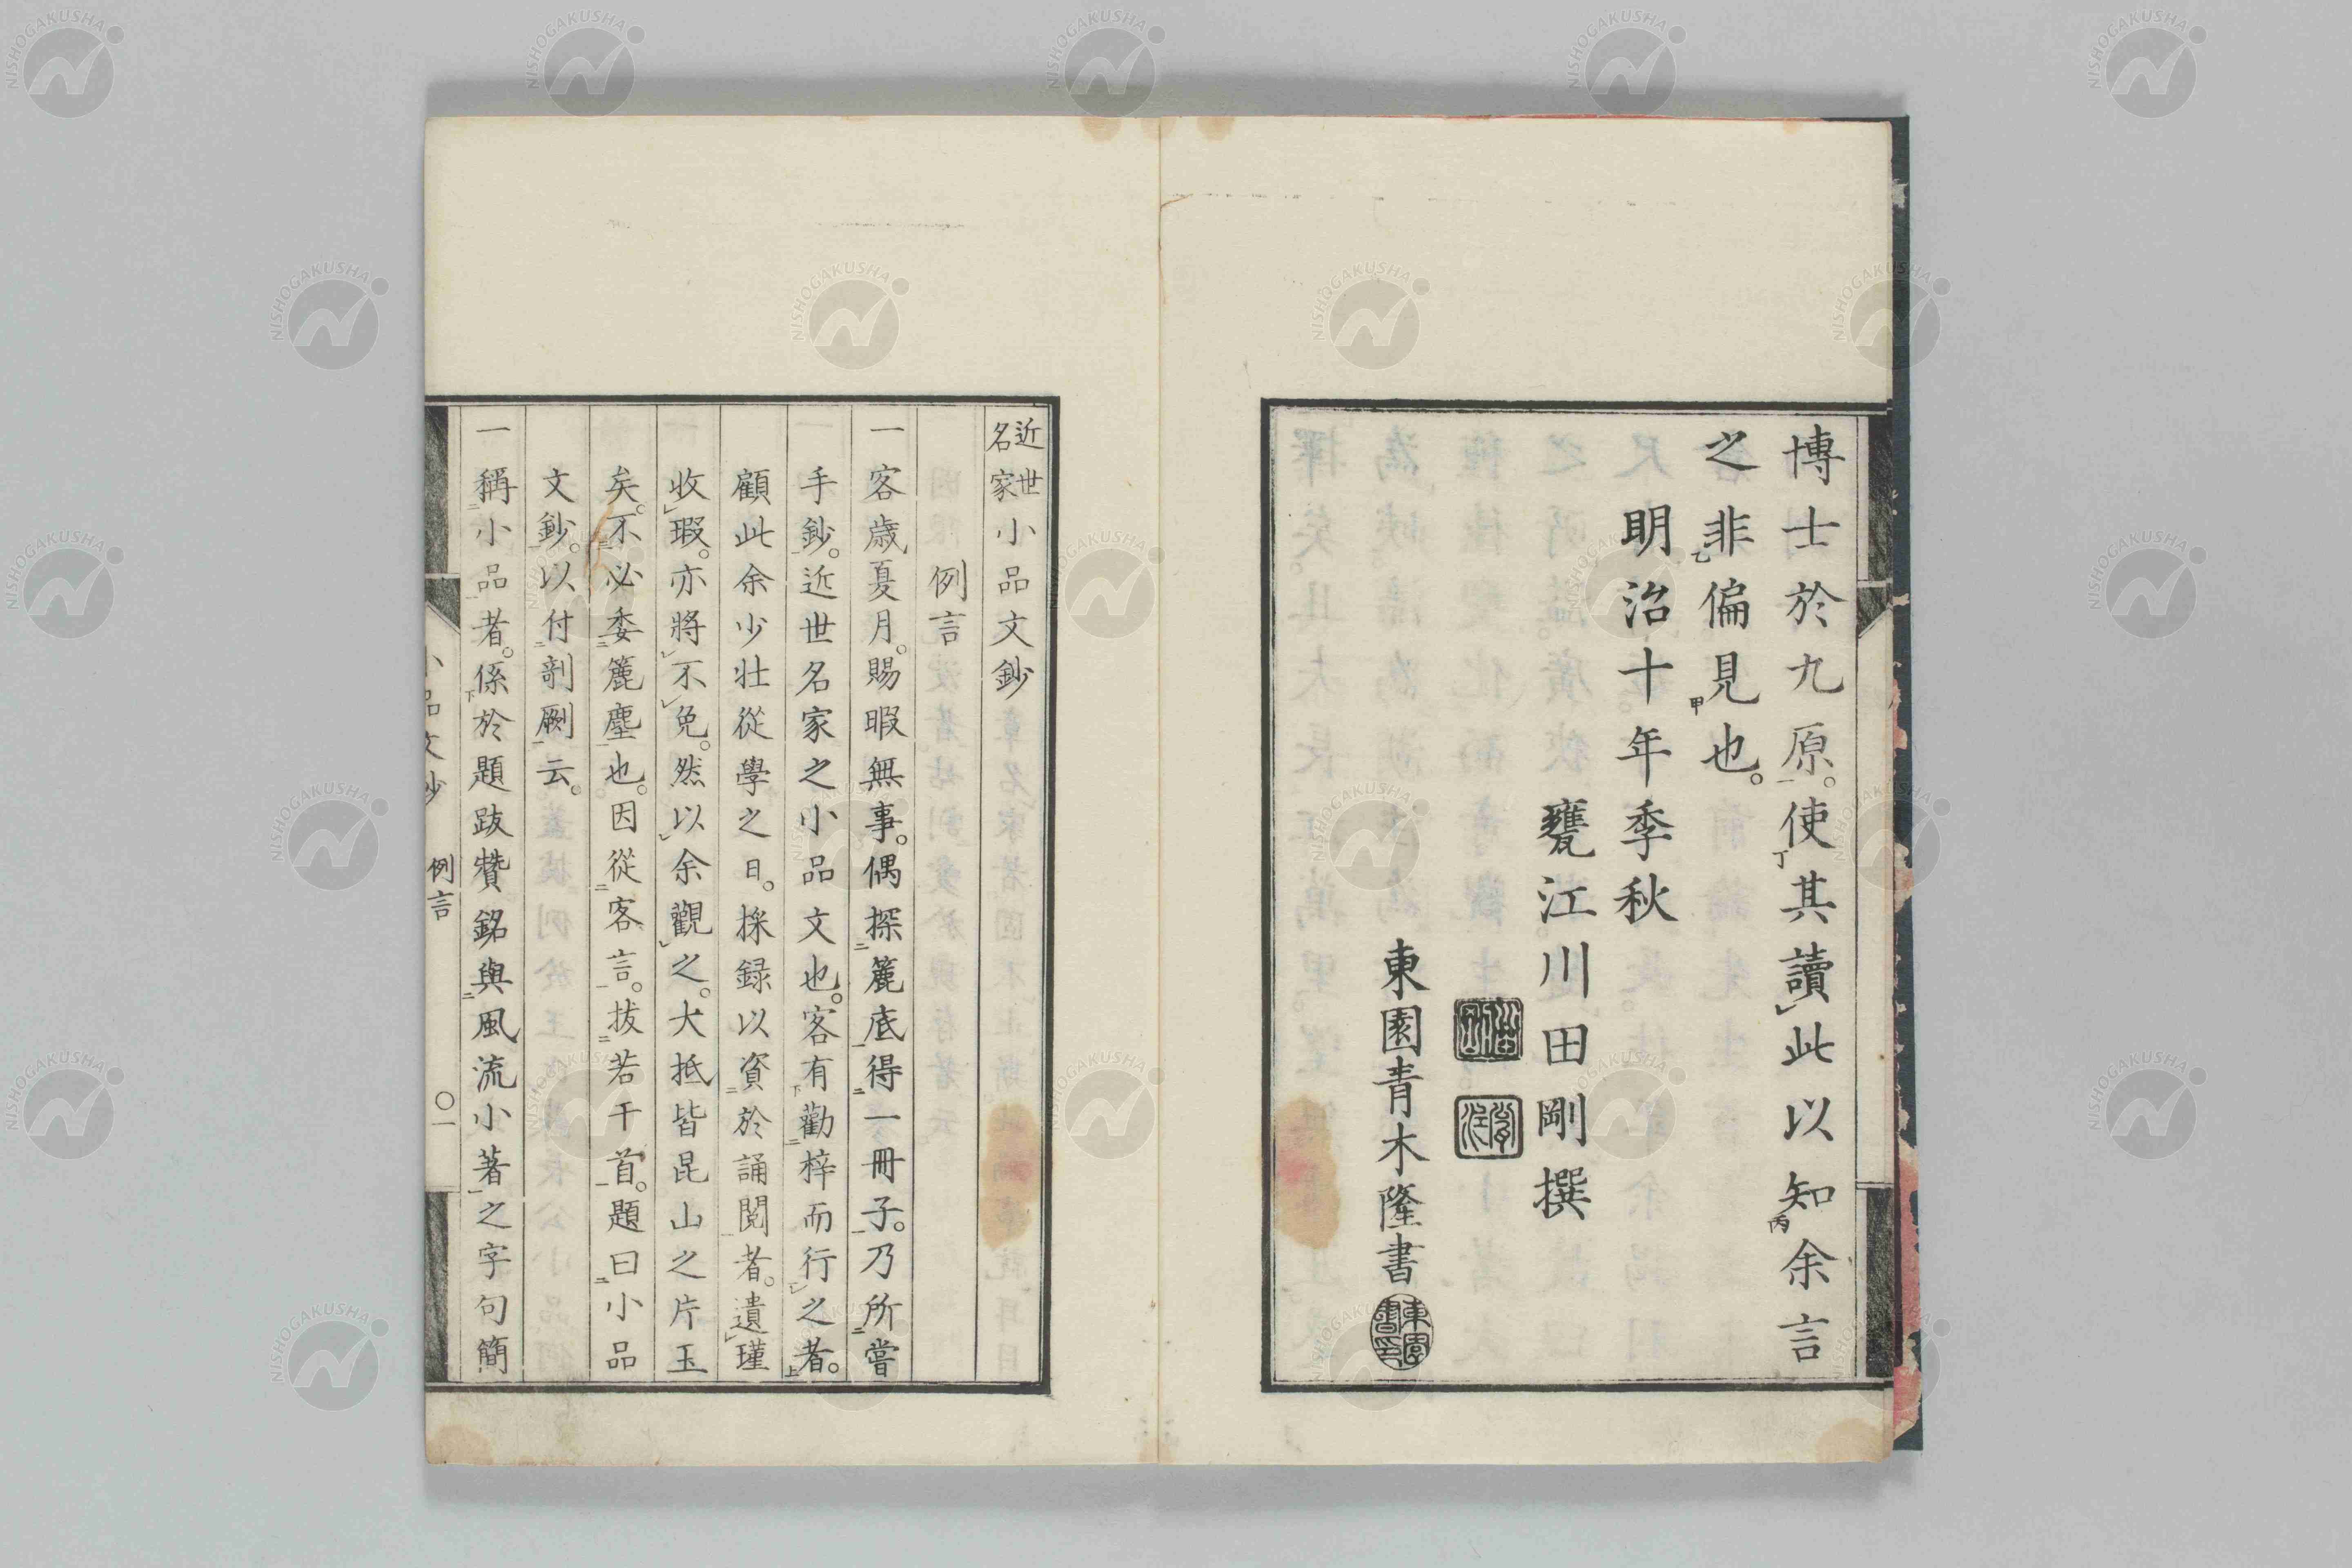 博士於九原。使其讀此以知余言
之非偏見也。
明治十年季秋
甕江川田剛撰
東園青木隆書
東園書印
近世名家小品文鈔
例言
一客歳夏月。賜暇無事。偶探簏底得一冊子。乃所嘗
手鈔。近世名家之小品文也。客有勸梓而行之者。
顧此余少壮從學之日。採録以資於誦閲者。遺瑾
收瑕。亦將不免。然以余觀之。大抵皆昆山之片玉
矣。不必委簏塵也。因從客言。抜若干首。題曰小品
文鈔。以付剞劂云。
一稱小品者。係於題跋贊銘與風流小著之字句簡
小品文鈔 例言 〇一
NISHOGAKUSHA